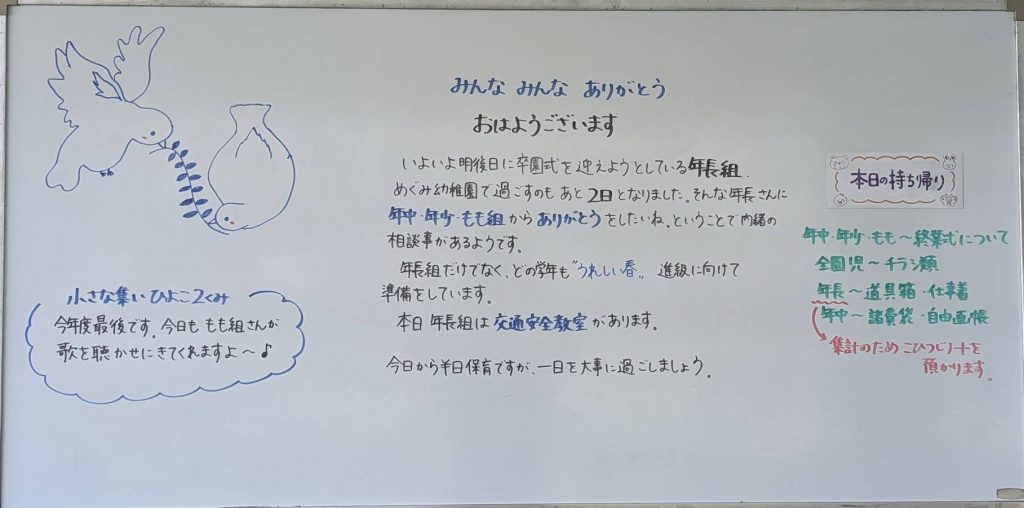 みんな みんな ありがとう
おはようございます
いよいよ明後日に卒園式を迎えようとしている年長組.
めぐみ幼稚園で過ごすのも あと 2日となりました。そんな年長さんに
年中・年少・もも組からありがとうをしたいね。ということで内緒の
相談事があるようです。
年長組だけでなく、どの学年も"うれしい春„ 進級に向けて
準備をしています。
本日 年長組は 交通安全教室 があります。
今日から半日保育ですが、一日を大事に過ごしましょう。
小さな集い ひよこ2くみ
今年度最後です。今日も もも組さんが
歌を聴かせにきてくれますよ～♪
本日の持ち帰り
年中・年少・もも～終業式について
全園児～チラシ類
年長～道具箱・仕事着
年中～諸費袋・自由画帳
集計のため こひつじノートを
預かります。